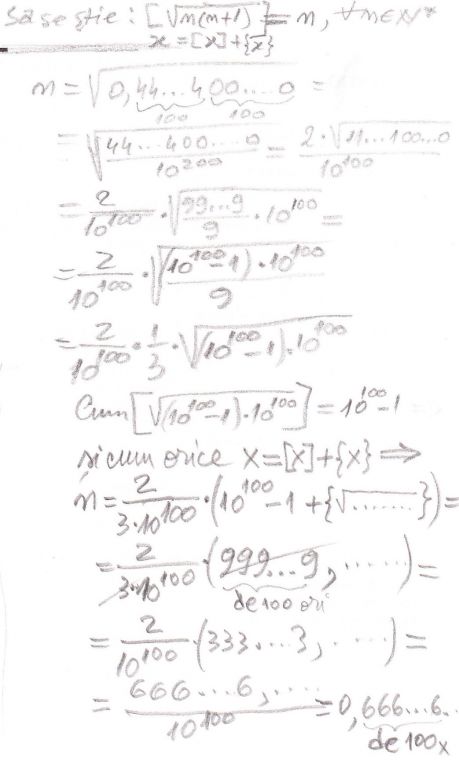 Să se știe: [√n(n+1)] = n, ∀n∈N*
x = [x] + {x}
n = √0,44...400....0 =
100 100
= √44...400...0/10^200 = 2·√11...100...0/10^100
= 2/10^100 · √99...9/9 · 10^100 =
= 2/10^100 · √(10^100-1)·10^100/9
= 2/10^100 · 1/3 · √(10^100-1)·10^100
Cum [√(10^100-1)·10^100] = 10^100-1
și cum orice x=[x]+{x} ⟹
n = 2/3·10^100 · (10^100-1+{√........}) =
= 2/3·10^100 · (999...9, .....) =
de 100 ori
= 2/10^100 · (333...3, ....) =
= 666...6, ..../10^100 = 0,666...6..
de 100x